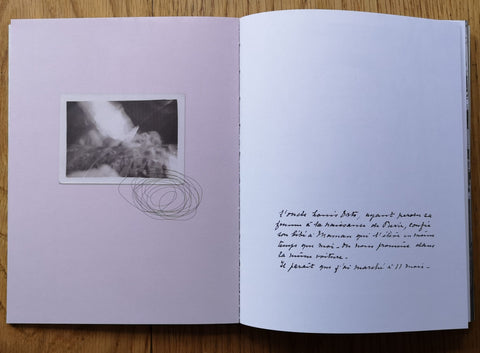 L'oncle Louis            , ayant perdu sa
femme à la naissance de        , confie
son bébé à Maman qui l'élève en même
temps que moi - On nous promène dans
la même voiture -
Il paraît que j'ai marché à 11 mois -